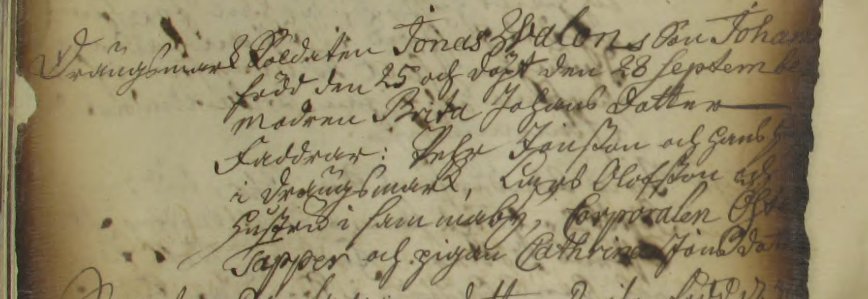 Draugsmark Soldaten Jonas Hvalens Son Johan
född den 25 och döpt den 28 September
Modren Brita Johans Dotter
Faddrar: Pehr Jonsson och hans
i Draugsmark, Lars Olofsson och
hustru i samma by, Corporalen
Tapper och pigan Cathrina Jons Dotter